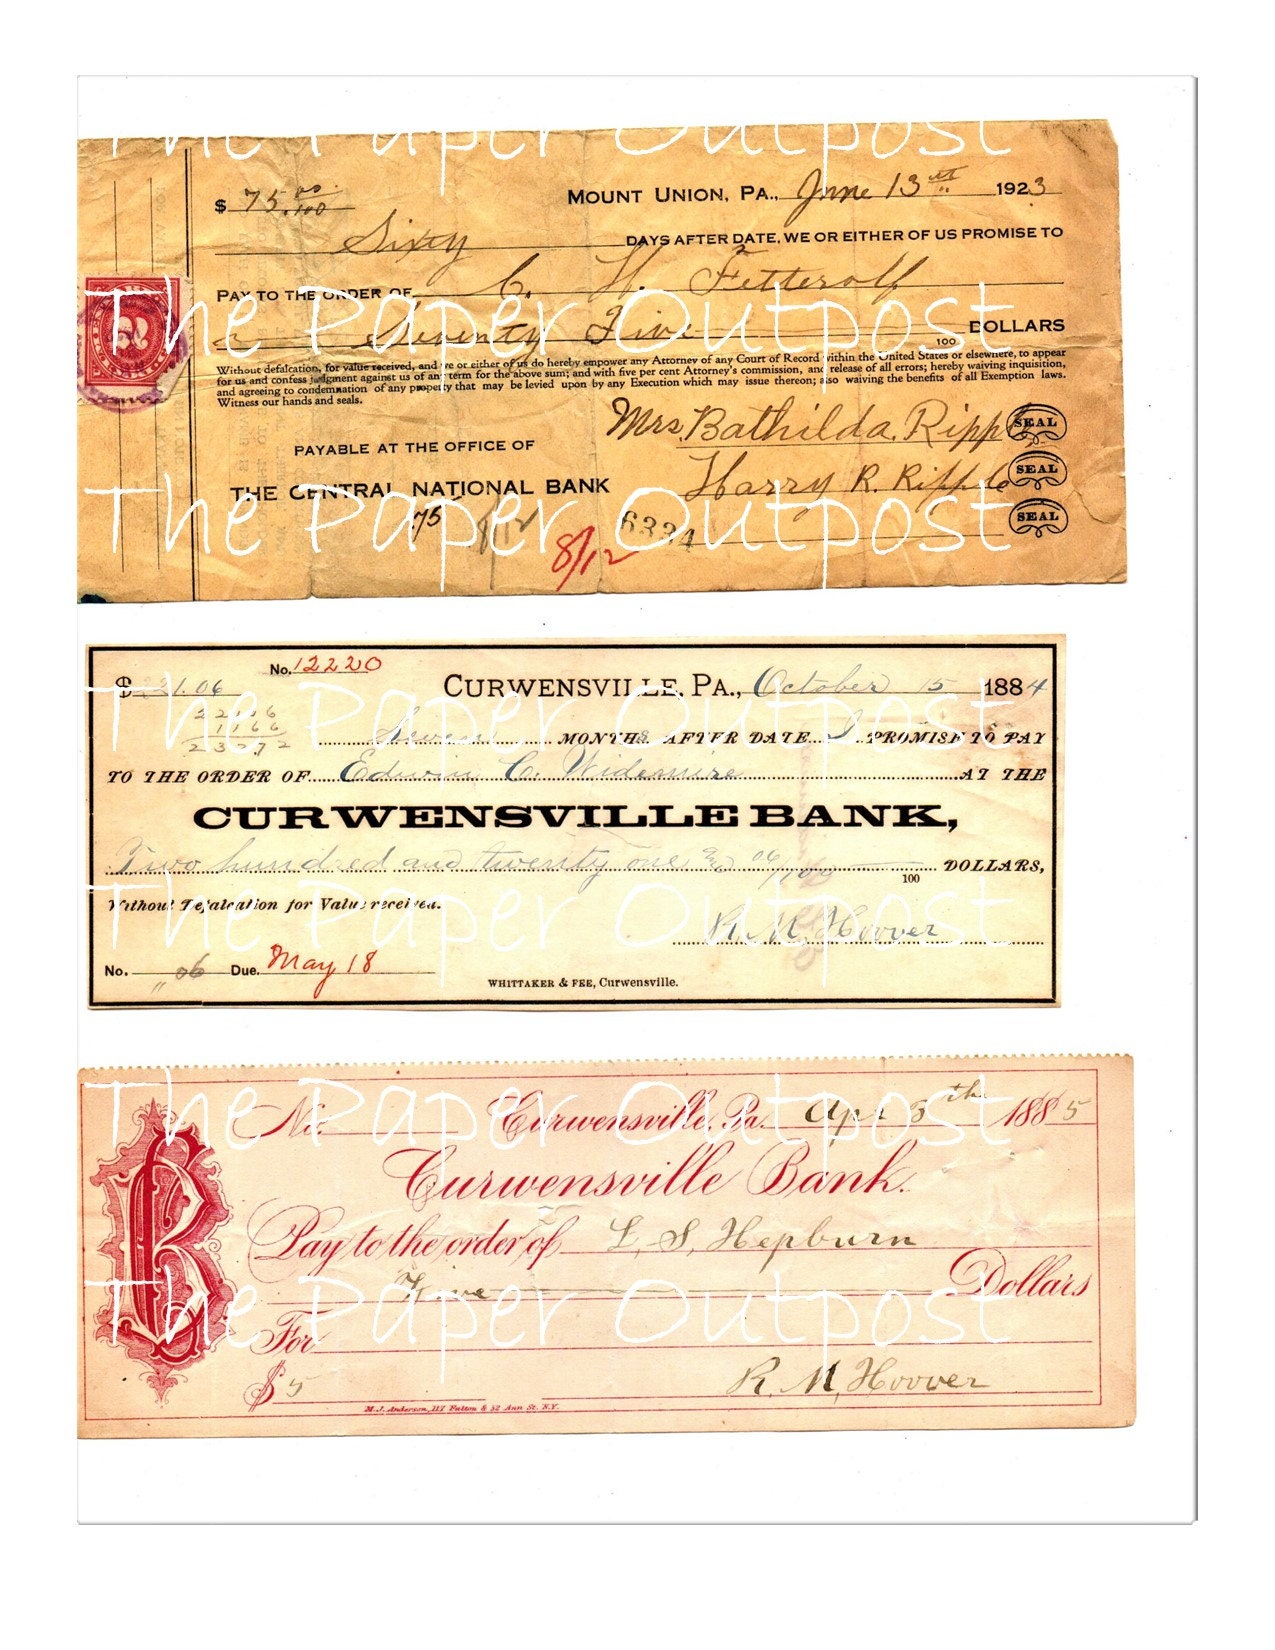 The Paper Outpost
$ 75.00/100 MOUNT UNION, PA., June 13th 1923
Sixty DAYS AFTER DATE, WE OR EITHER OF US PROMISE TO
PAY TO THE ORDER OF C. H. Fetterolf
The Paper Outpost
Seventy Five 100 DOLLARS
Without defalcation, for value received, and we or either of us do hereby empower any Attorney of any Court of Record within the United States or elsewhere, to appear
for us and confess judgment against us of any term for the above sum; and with five per cent Attorney's commission, and release of all errors; hereby waiving inquisition,
and agreeing to condemnation of any property that may be levied upon by any Execution which may issue thereon; also waiving the benefits of all Exemption laws.
Witness our hands and seals.
Mrs. Bathilda Ripple SEAL
PAYABLE AT THE OFFICE OF
Harry R. Ripple SEAL
THE CENTRAL NATIONAL BANK
The Paper Outpost
75 8/12 8/12 6334 SEAL
No. 12220
$ 221.06 CURWENSVILLE, PA., October 15 1884
The Paper Outpost
22106
1166
23272
Seven MONTHS AFTER DATE I PROMISE TO PAY
TO THE ORDER OF Edwin C. Widemire AT THE
CURWENSVILLE BANK,
Two hundred and twenty one 06/100 100 DOLLARS,
Without Defalcation for Value received.
The Paper Outpost
R. M. Hoover
No. 06 Due. May 18
WHITTAKER & FEE, Curwensville.
The Paper Outpost
No. Curwensville, Pa. Apr 8th 1885
Curwensville Bank.
Pay to the order of L. S. Hepburn
Five Dollars
The Paper Outpost
For
$ 5 R. M. Hoover
M. J. Anderson, 117 Fulton & 52 Ann St. N.Y.